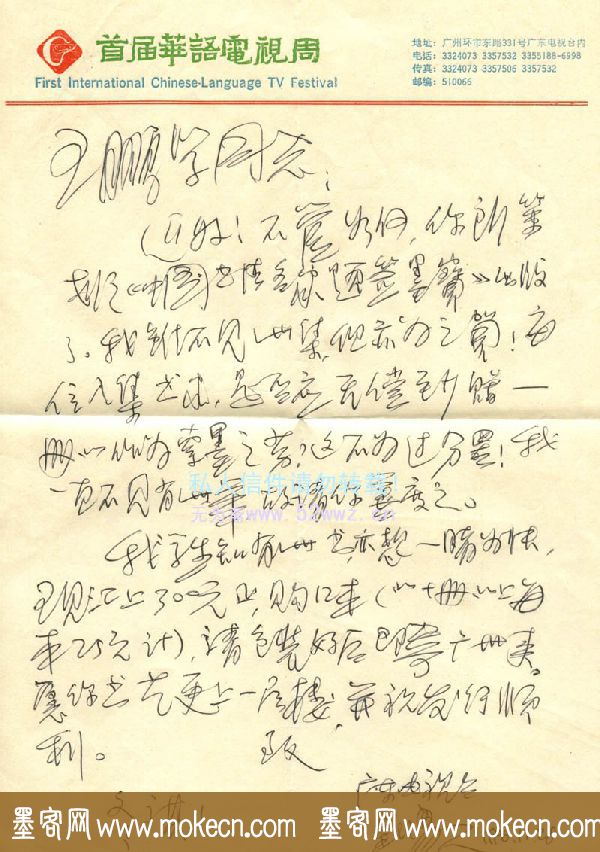 首届華語電視周
First International Chinese-Language TV Festival
地址：广州环市东路331号广东电视台内
电话：3324073 3357532 3355188-6998
传真：3324073 3357506 3357532
邮编：510066
王鹏学同志：
近好！不管如何，你所策
划《中国书法名家题签墨宝》出版
了。我虽不见此集，但亦为之贺！每
位入集书家，是否应无偿至少赠一
册以作为劳墨之劳？这不为过分罢！我
一直不见有此举，故请你考虑之。
私人信件请勿转载！
www.52wwz.cn
我学生知有此书，亦想一睹为快，
现汇上300元正，购12本（以十册以上每
本25元计），请包装好后即寄广州来。
愿你书艺更上一层楼，并祝发行顺
利。 致
广东电视台
墨客网 www.mokecn.com 墨客网 www.mokecn.com